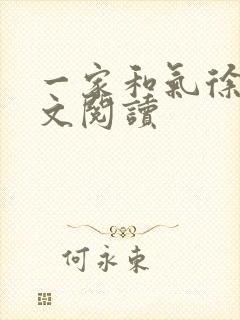 一家和氣徐
文閱讀
何永東